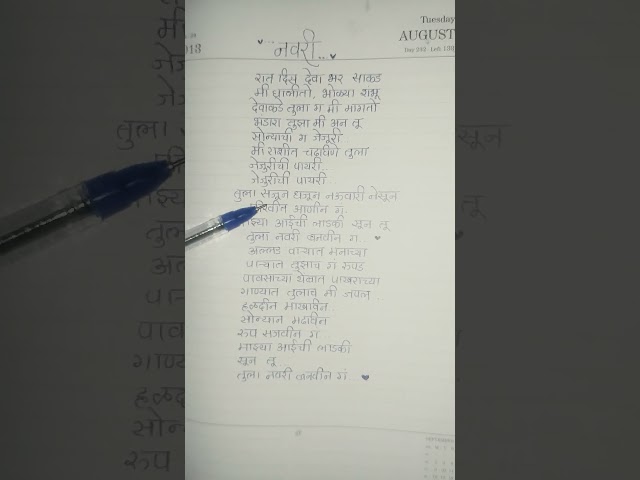 Tuesday
AUGUST
नवरी..
रात दिस देवा भर साकड
मी घालीतो, भोळ्या शंभू
देवाकडे तुला ग मी मागतो
भंडारा तुझा मी अन तू
सोन्याची ग जेजूरी..
मी राशीत चढविणे तुला
जेजुरीची पायरी..
जेजुरीची पायरी..
तुला सजून धजून नऊवारी नेसून
मिरवीत आणीन ग.
माझ्या आईची लाडकी सून तू
तुला नवरी बनवीन ग..
अल्लड वाऱ्यात मनाच्या
पाऱ्यात तुझाच ग रुपडं
पावसाच्या थेंबात पाखराच्या
गाण्यात तुलाच मी जपलं..
हळदीन माखविन..
सोन्यान मढविन
रूप सजवीन ग..
माझ्या आईची लाडकी
सून तू..
तुला नवरी बनवीन गं..